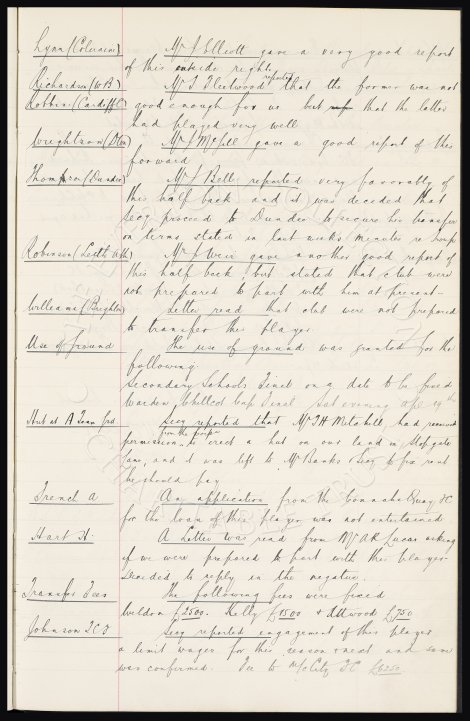 Lynn (Coleraine) Mr J Elliott gave a very good report
of this outside right
Richardson (W B) Mr J Fleetwood reported that the former was not
Robbins (Cardiff C) good enough for us but that the latter
had played very well
Wrightson (Dton) Mr J gave a good report of this
forward
Thomson (Dundee) Mr J Bell reported very favorably of
this half back and it was decided that
Secy proceed to Dundee to secure his transfer
on terms stated in last weeks minutes re
Robinson (Leith Ath) Mr J Weir gave another good report of
this half back but stated that club were
not prepared to part with him at present
Williams (Brighton) Letter read that club were not prepared
to transfer this player
Use of ground The use of ground was granted for the
following
Secondary Schools Final on a date to be fixed
Walden Cup Final Sat evening Apl 19th
Hut at A Team Grd Secy reported that Mr TH Mitchell had received
permission from the to erect a hut on our land in
Lane, and it was left to Mr Banks & Secy to fix rent
he should pay
French A An application from the Connahs Quay FC
for the loan of this player was not entertained
Hart H. A Letter was read from Mr A R Lucas asking
if we were prepared to part with this player
Decided to reply in the negative.
Transfer Fees The following fees were fixed
Weldon £2500. Kelly £1500 & Attwood £750
Johnson T C F Secy reported engagement of this player
a limit wages for this season & next and same
was confirmed. Fee to M/c City FC £6250